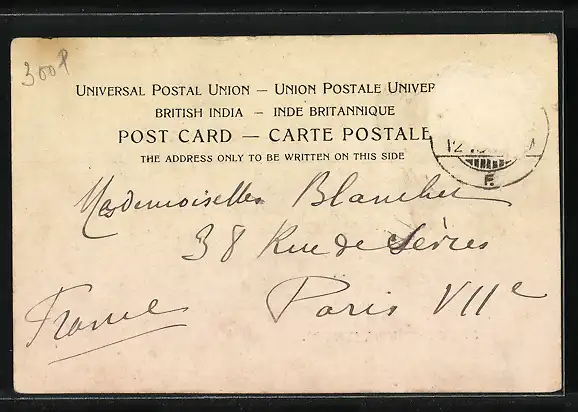 300P
UNIVERSAL POSTAL UNION — UNION POSTALE UNIVER
BRITISH INDIA — INDE BRITANNIQUE
POST CARD — CARTE POSTALE
THE ADDRESS ONLY TO BE WRITTEN ON THIS SIDE
12
F.
Mesdemoiselles Blanchet
38 Rue de Sèvres
France Paris VIIe